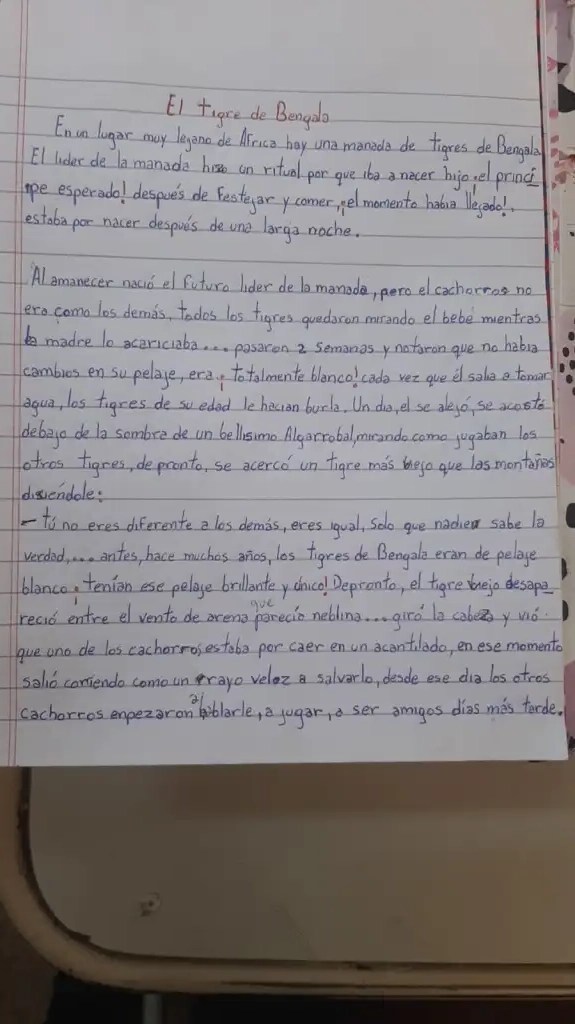 El tigre de Bengala
En un lugar muy lejano de África hay una manada de tigres de Bengala
El lider de la manada hiso un ritual por que iba a nacer hijo, el princi
ipe esperado! después de festejar y comer, ¡el momento habia llegado!,
estaba por nacer después de una larga noche.
Al amanecer nació el futuro lider de la manada, pero el cachorros no
era como los demás, todos los tigres quedaron mirando el bebé mientras
la madre lo acariciaba... pasaron 2 semanas y notaron que no habia
cambios en su pelaje, era ¡totalmente blanco! cada vez que él salia a tomar
agua, los tigres de su edad le hacian burla. Un dia, el se alejó, se acostó
debajo de la sombra de un bellisimo Algarrobal, mirando como jugaban los
otros tigres, de pronto, se acercó un tigre más viejo que las montañas
disiéndole:
- tú no eres diferente a los demás, eres igual, Solo que nadie sabe la
verdad,... antes, hace muchos años, los tigres de Bengala eran de pelaje
blanco ¡tenían ese pelaje brillante y único! Depronto, el tigre viejo desapa
reció entre el vento de arena que parecio neblina... giró la cabeza y vió
que uno de los cachorros, estaba por caer en un acantilado, en ese momento
salió corriendo como un rayo veloz a salvarlo, desde ese dia los otros
cachorros enpezaron a ablarle, a jugar, a ser amigos días más tarde.